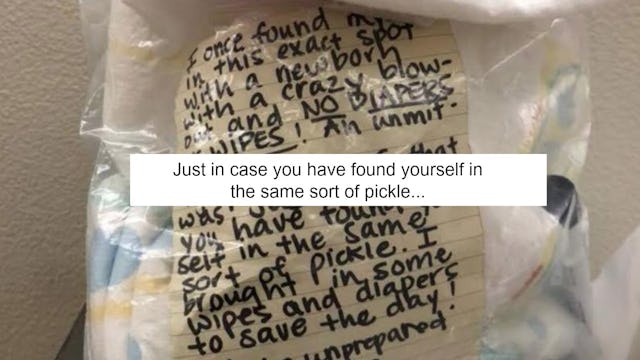 I once found my
in this exact spot
with a newborn
with a crazy blow-
out and NO DIAPERS
WIPES! An unmit-
that
Just in case you have found yourself in
the same sort of pickle...
was!
you have found
self in the same
sort of pickle. I
brought in some
wipes and diapers
to save the day!
unprepared